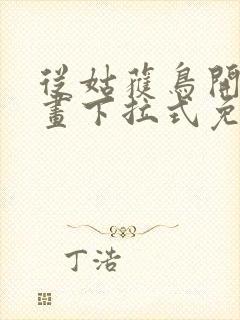 從姑蔢鳥開
畫下拉式免
丁浩